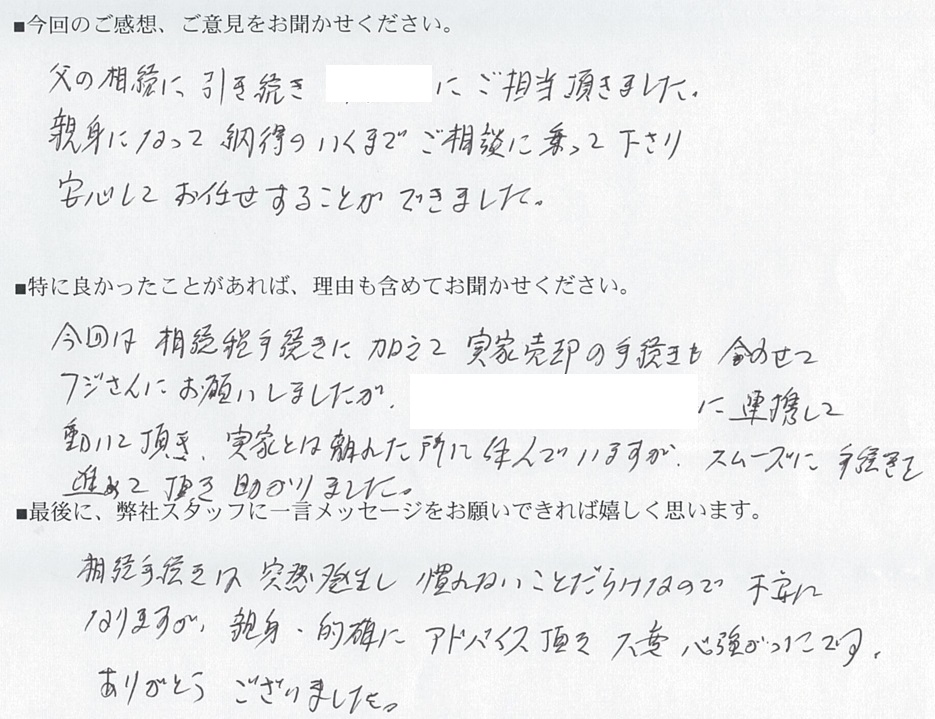 ■今回のご感想、ご意見をお聞かせください。
父の相続に引き続き に ご担当頂きました。
親身になって 納得のいくまで ご相談に乗って下さり
安心して お任せすることが できました。
■特に良かったことがあれば、理由も含めてお聞かせください。
今回は 相続税手続きに 加えて 実家売却の手続きも 含めせて
フジさんに お願いしましたが、 に連携して
動いて頂き、実家とは離れた所に住んでいますが、スムーズに 手続きを
進めて 頂き 助かりました。
■最後に、弊社スタッフに一言メッセージをお願いできれば嬉しく思います。
相続手続きは 突然発生し 慣れないことだらけなので 不安に
なりますが、親身・的確に アドバイス頂き 大変 心強かったです。
ありがとう ございました。